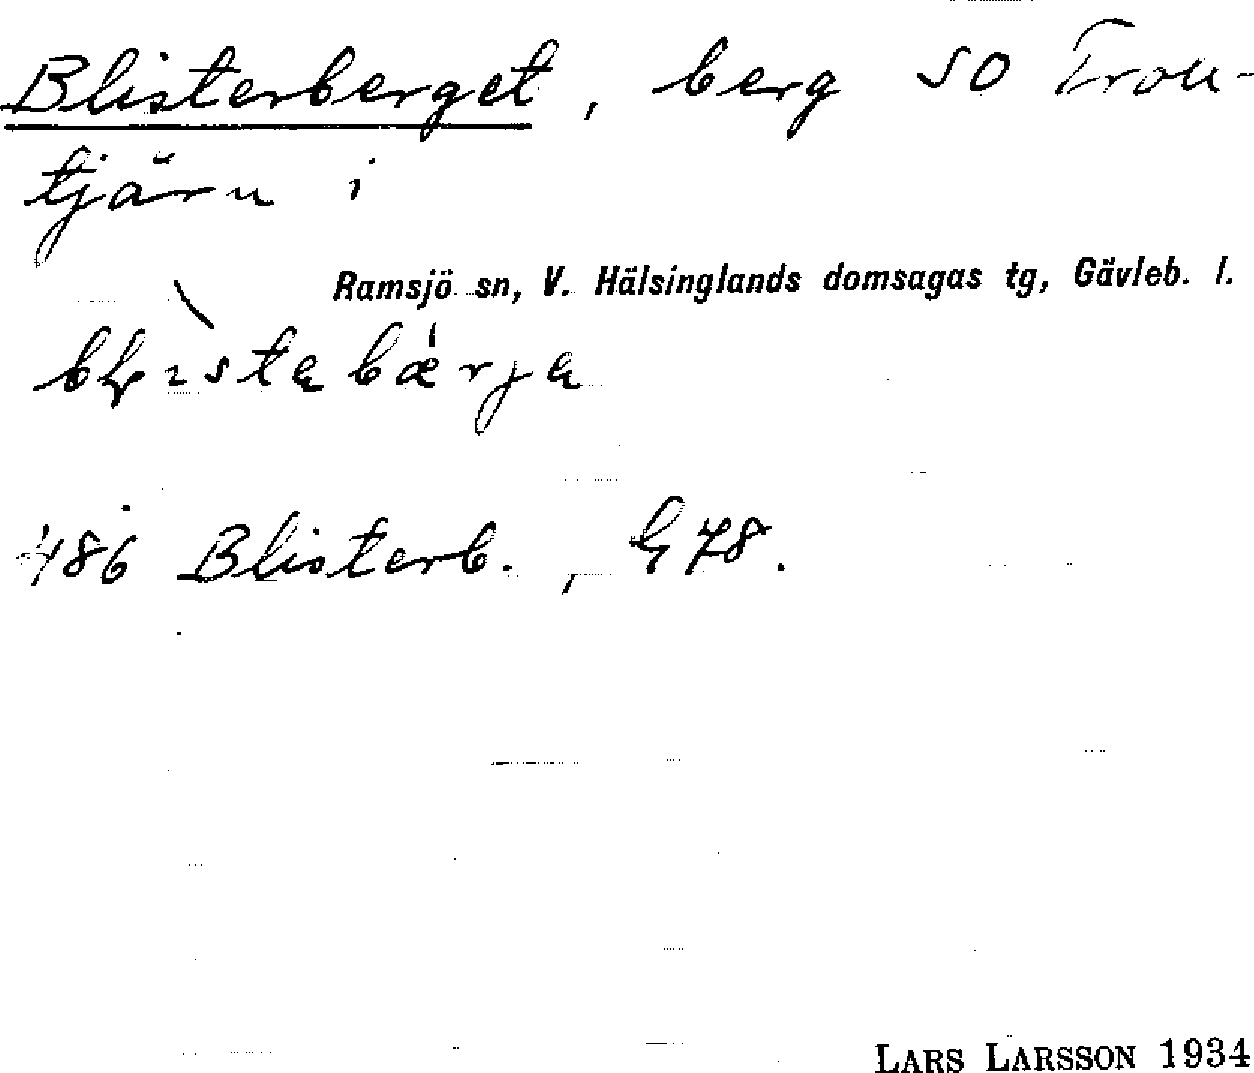 Blisterberget, berg SO Tron-
tjärn i
Ramsjö sn, V. Hälsinglands domsagas tg, Gävleb. l.
486 Blisterb., G 78.
LARS LARSSON 1934